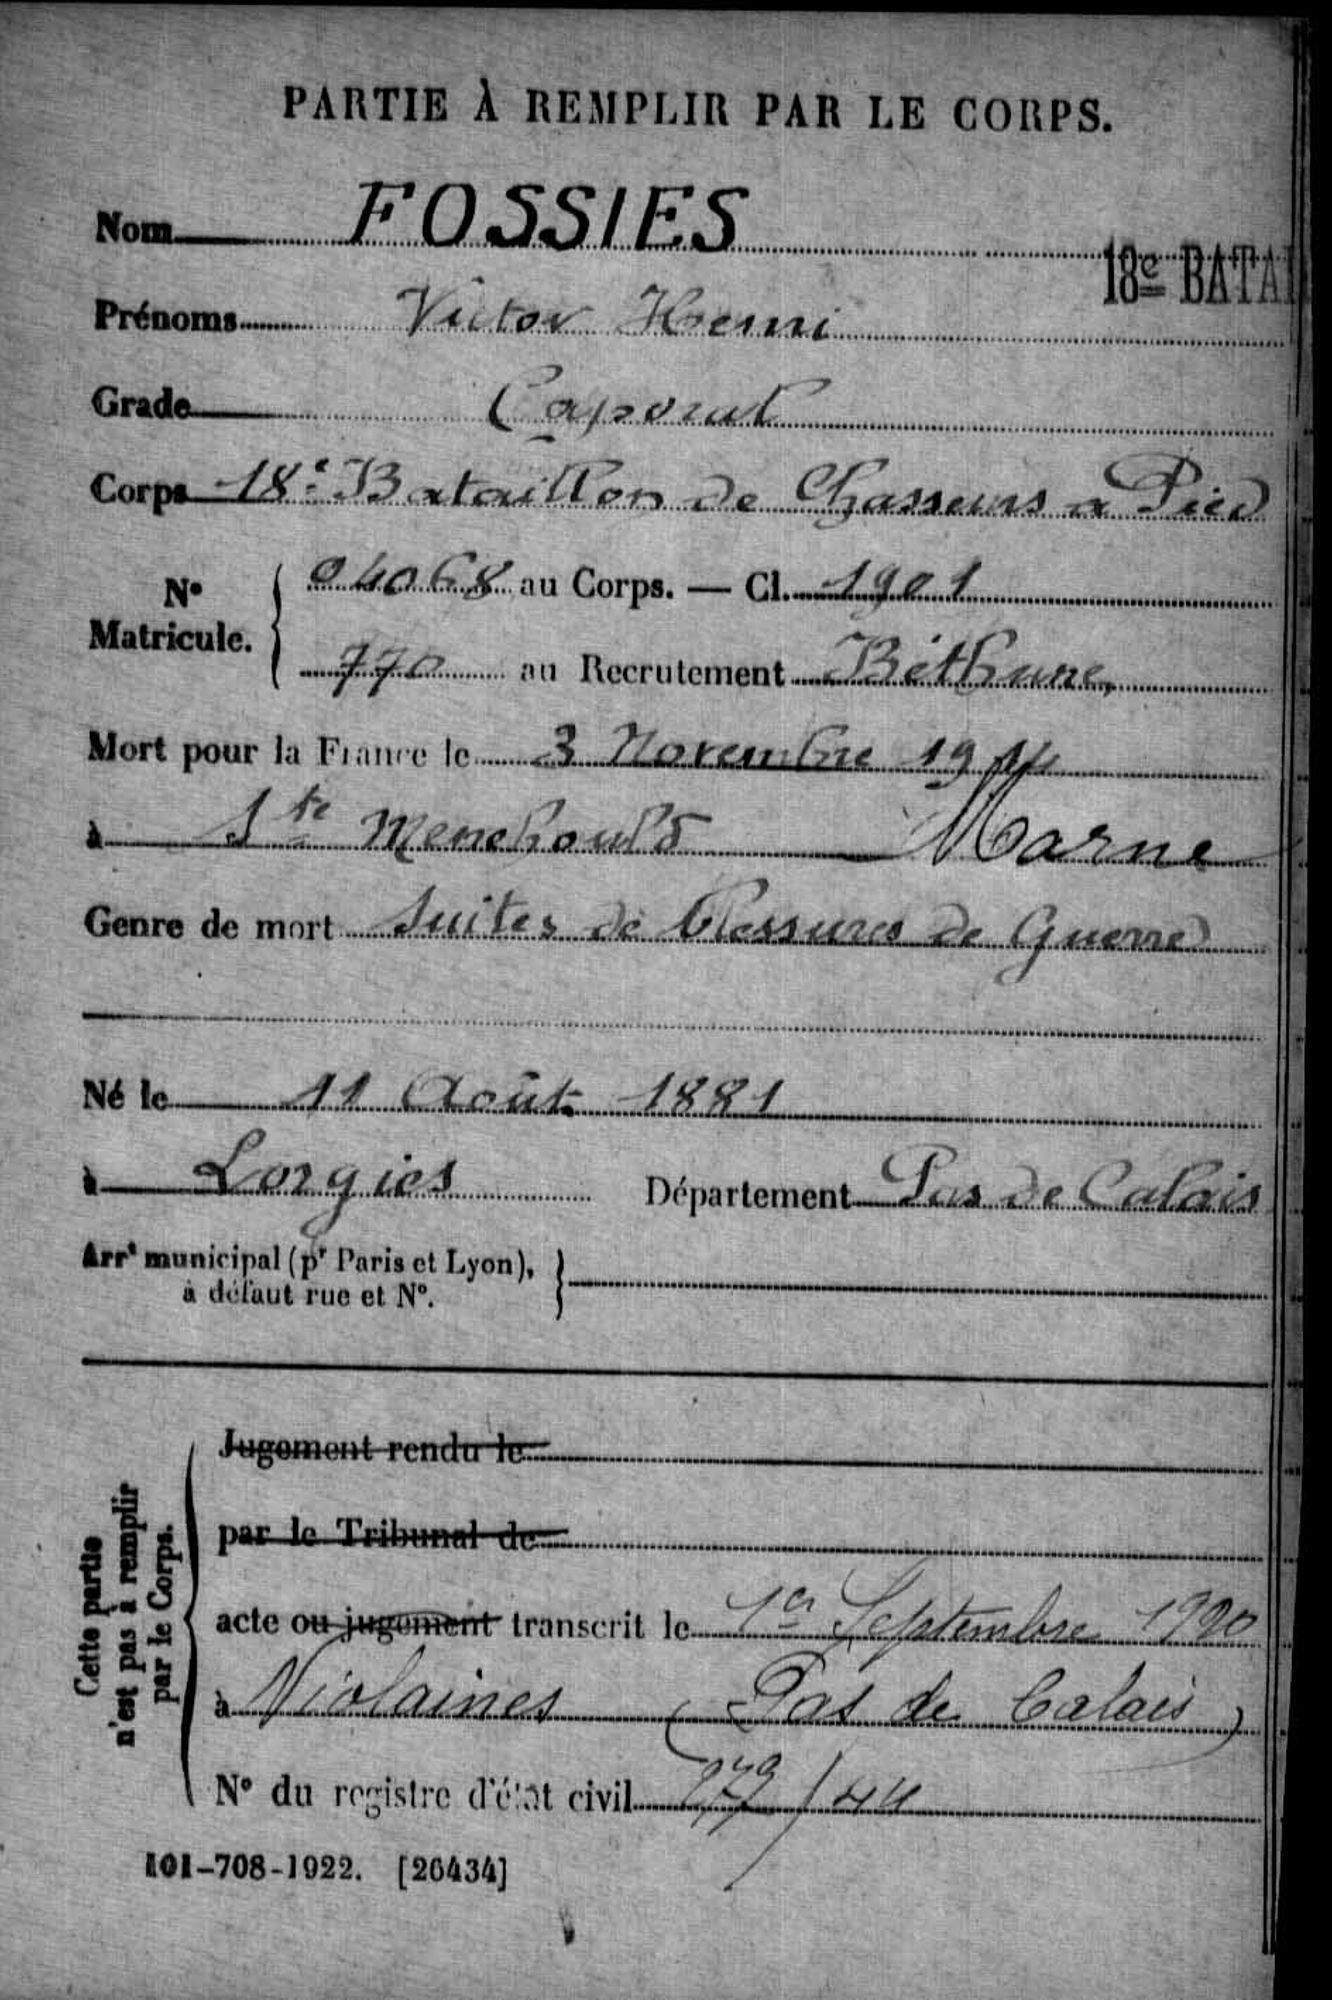 PARTIE À REMPLIR PAR LE CORPS.
Nom FOSSIES
18e BATAI
Prénoms Victor Henri
Grade Caporal
Corps 18e Bataillon de Chasseurs a Pied
No Matricule. 04068 au Corps. — Cl. 1901
770 au Recrutement Béthune,
Mort pour la France le 3 Novembre 1914
à Ste Menehould Marne
Genre de mort Suites de blessures de Guerre
Né le 11 Août 1881
à Lorgies Département Pas de Calais
Arrt municipal (pr Paris et Lyon),
à défaut rue et No.
Cette partie
n'est pas à remplir
par le Corps.
Jugement rendu le
par le Tribunal de
acte ou jugement transcrit le 1er Septembre 1920
à Violaines (Pas de Calais)
No du registre d'état civil 279/44
101-708-1922. [26434]